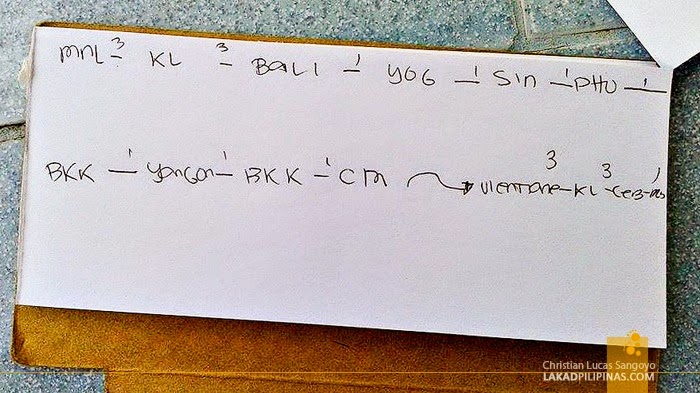 MNL - 3 KL - 3 BALI - 1 YOG - 1 SIN - 1 PHU - 1
BKK - 1 YANGON - 1 BKK - 1 CM → VIENTIANE - 3 KL - 3 CEB - 1
Christian Lucas Sangoyo
LAKADPILIPINAS.COM